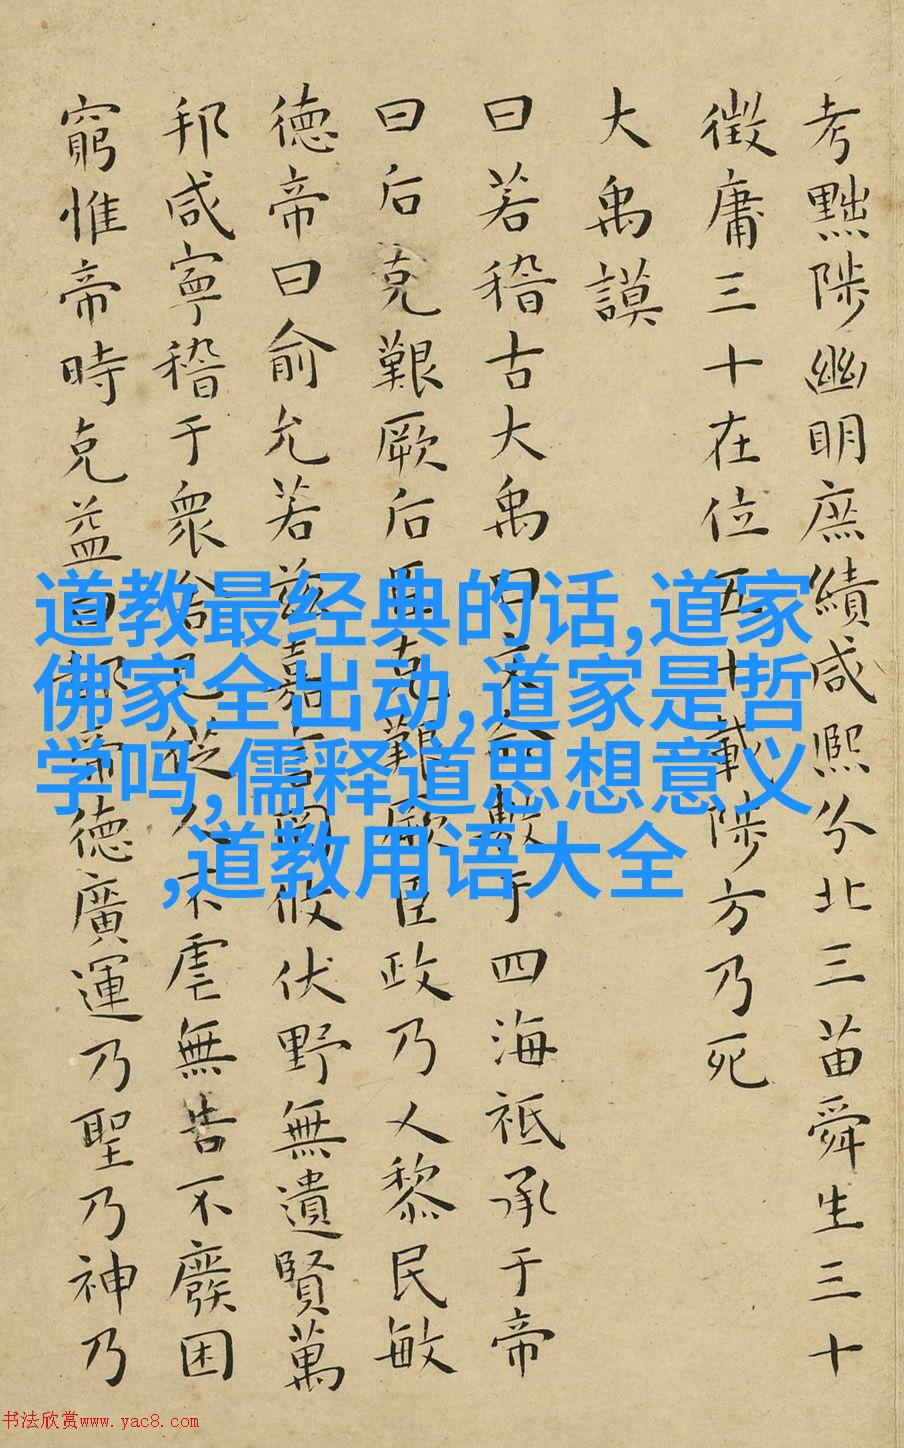 考黜陟幽明庶績咸熙分北三苗舜生三十
徵庸三十在位五十載陟方乃死
大禹謨
曰若稽古大禹曰文命敷于四海祗承于帝
曰后克艱厥后臣克艱厥臣政乃乂黎民敏
德帝曰俞允若茲嘉言罔攸伏野無遺賢萬
邦咸寧稽于衆舍己從人不虐無告不廢困
窮惟帝時克益曰都帝德廣運乃聖乃神乃
道教最经典的话,道家
佛家全出动,道家是哲
学吗,儒释道思想意义
,道教用语大全
书法欣赏www.yac8.com